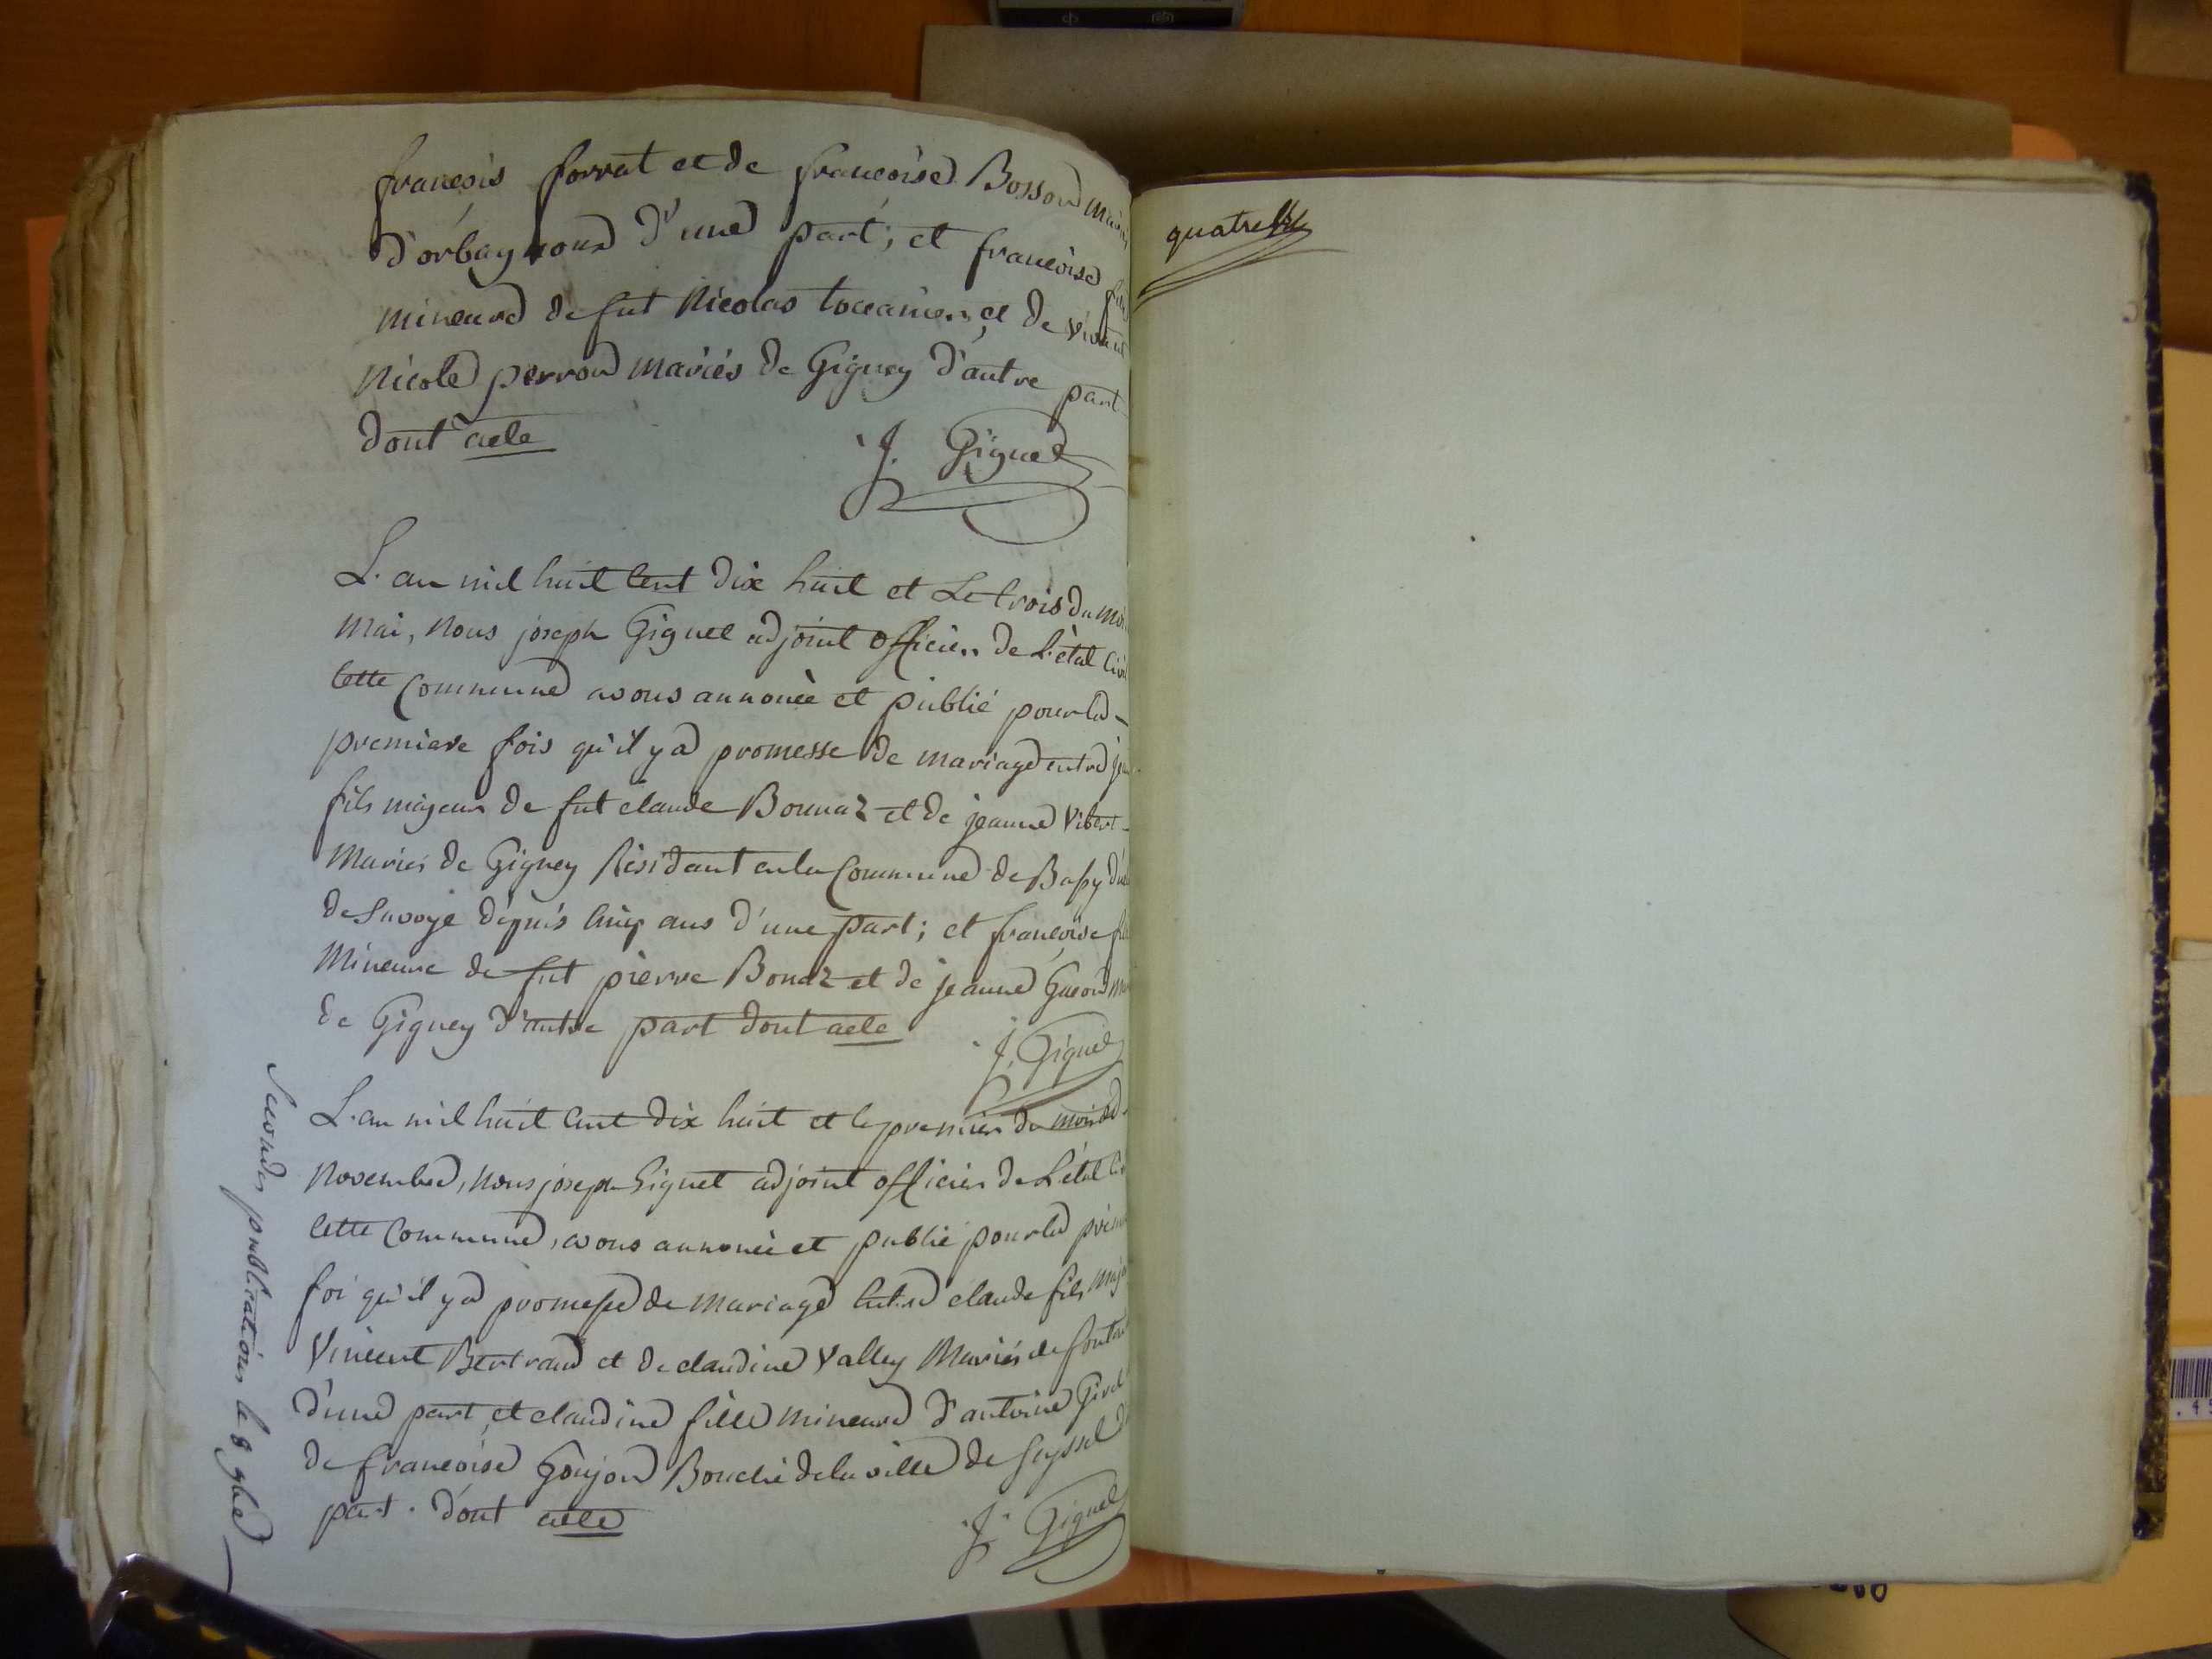 françois forrat et de françoise Bosson
d'orbagnoux d'une part; et françoise
mineure de fut Nicolas toccanier, et de
Nicole perron mariés de Gigney d'autre part
dont acte
J. Giguet
L'an mil huit Cent dix huit et Le trois du
mai, Nous joseph Giguet adjoint officier de L'état
Cette Commune avons annoncé et publié pour la
premiere fois qu'il y a promesse de mariage entre
fils majeur de fut claude Bonnaz et de jeanne Vibert
Mariés de Gigney Résidant en la Commune de Bassy
de Savoye dépuis Cinq ans d'une part; et françoise
Mineure de fut pierre Bonaz et de jeanne
de Gigney d'autre part dont acte
J. Giguet
L'an mil huit Cent dix huit et le premier du mois de
Novembre, Nous joseph Giguet adjoint officier de L'état
Cette Commune, avons annoncé et publié pour la
foi qu'il y a promesse de mariage Entre claude fils
Vincent Bertrand et de claudine Valley Mariés de
d'une part, et claudine fille mineure d'antoine
de françoise Goujon Bouché de la ville de Seyssel
part. dont acte
J. Giguet
Secondes publications le 8 9bre
quatre